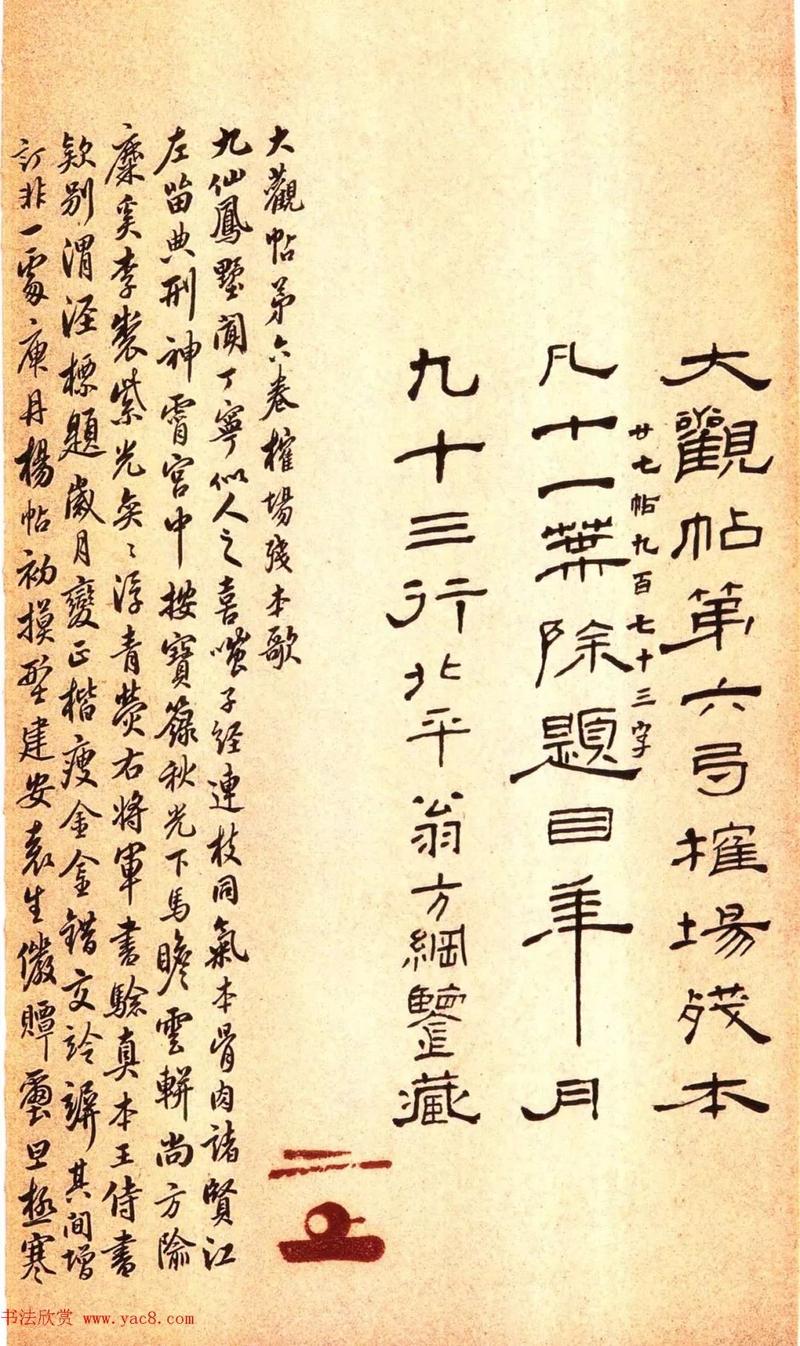 大觀帖第六弓搉場殘本
廿七帖九百七十三字
凡十一葉除題目年月
九十三行北平翁方綱鑒藏
大觀帖第六卷榷場殘本歌
九仙鳳墅聞丁寧似人之喜嗤子經連枝同氣本骨肉諸賢江
左留典刑神霄宮中按寶籙秋光下馬瞻雲軿尚方隃
麋奚李製紫光奕〻浮青熒右將軍書驗真本王侍書
款別渭涇標題歲月變正楷瘦金金錯交詅
其間增
訂非一處庚丹楊帖初摸型建安袁生
極寒
书法欣赏 www.yac8.com